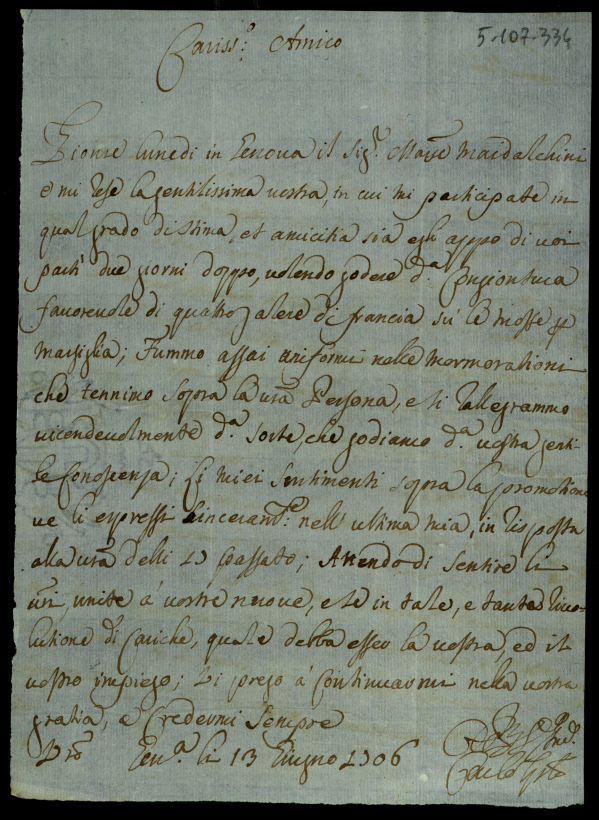 5-107-334
Cariss:º Amico
Gionse lunedi in Genova il Sig.r Mar.se Maidalchini
e mi rese la gentilissima vostra, in cui mi participate in
qual grado di stima, et amicitia sia egli appo di voi
partì due giorni doppo, volendo godere d.a Congiontura
favorevole di quattro galere di francia sù le mosse p
Marsiglia; Fummo assai uniformi nelle mormorationi
che tennimo sopra la vrã Persona, e si rallegrammo
vicendevolmente d.a sorte, che godiamo d.a vostra genti-
le Conoscenza; Li miei sentimenti sopra la promotione
ve li espressi sinceram.te nell' ultima mia, in risposta
alla vrã delli 23 passato; Attendo di sentire li
vri, unite à vostre nuove, e se in tale, e tanta rivo-
lutione di Cariche, quale debba esser la vostra, ed il
vostro impiego; Vi prego à Continuarmi nella vostra
gratia, e Credermi sempre
Vrõ Gen.a li 13 Giugno 1706